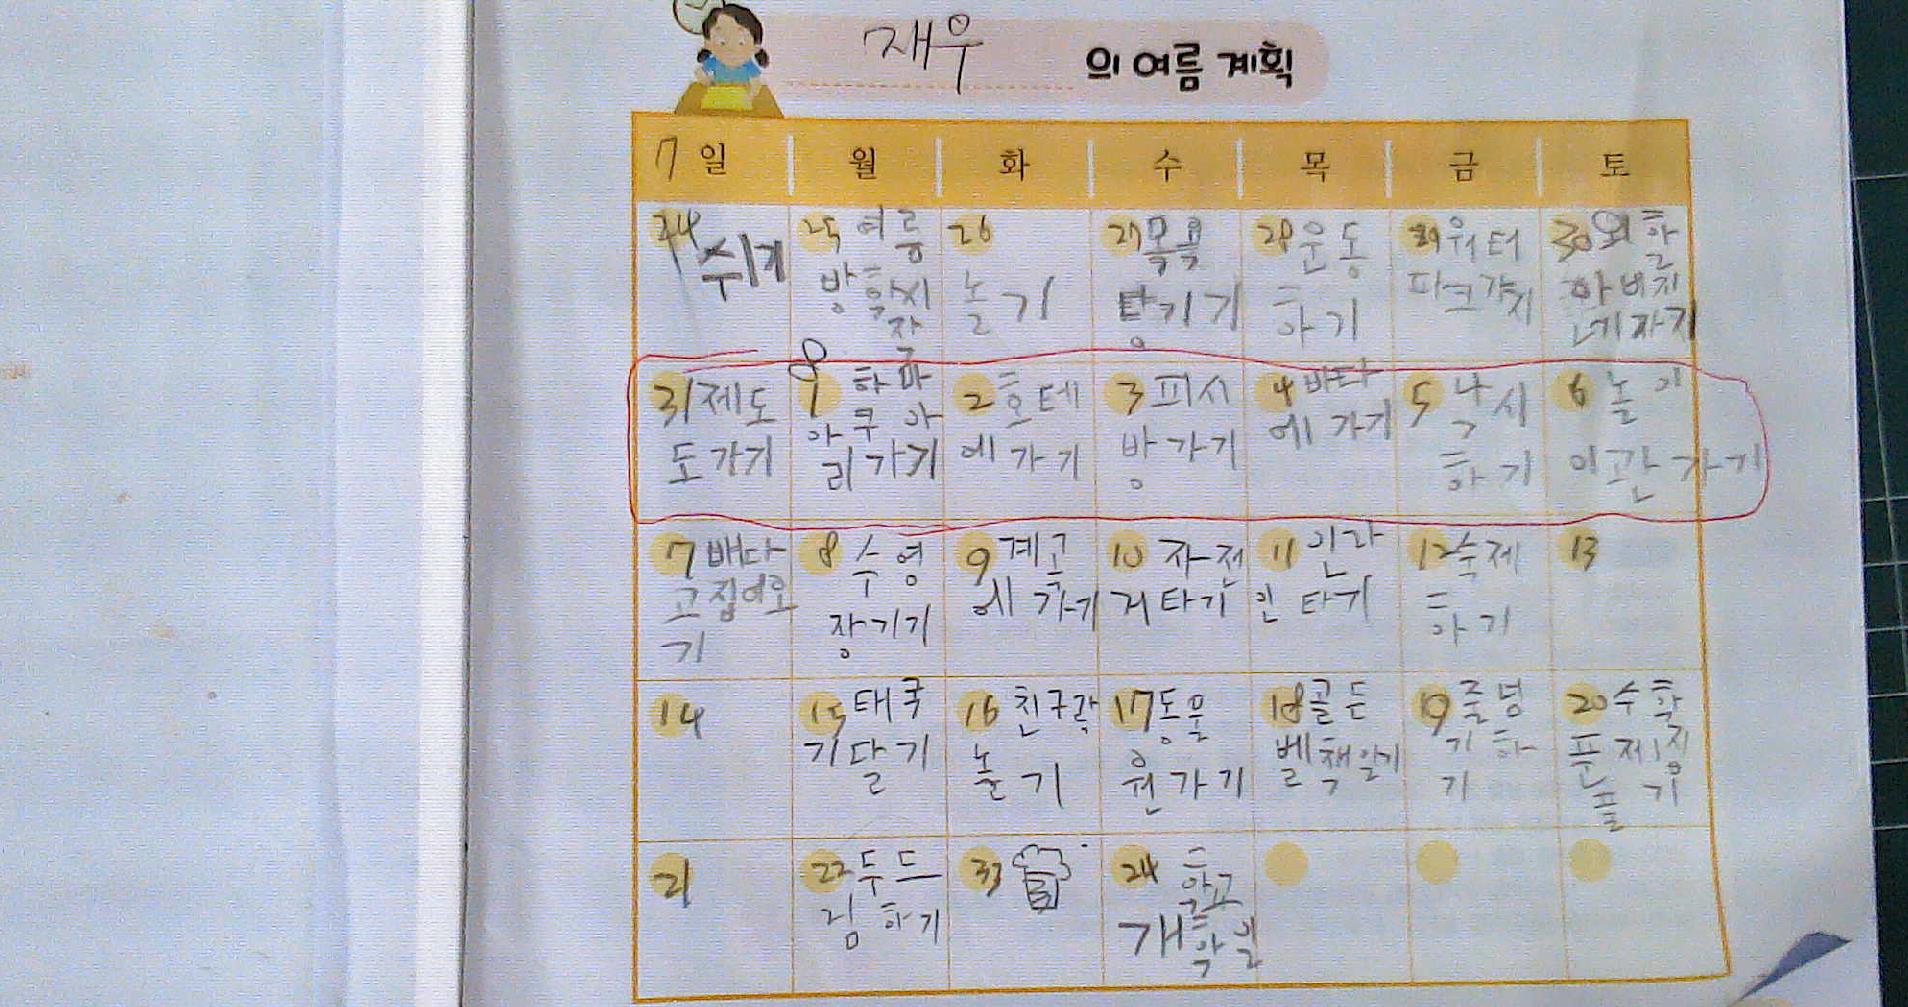 재우 의 여름 계획
7 일 월 화 수 목 금 토
24 쉬기
25 여름
방학시
작
26
놀기
27 목록
28 운동
하기
29 워터
파크가기
30 외할
아버지
네가기
31 제도
도가기
8
1 하마
아쿠아
리가기
2 호테
에 가기
3 피시
방가기
4 바다
에 가기
5 낙시
하기
6 놀이
이관가기
7 배타
고집에오
기
8 수영
장기기
9 계곡
에 가기
10 자전
거타기
11 인라
인 타기
12 숙제
하기
13
14
15 태국
기달기
16 친구랑
놀기
17 동물
원가기
18 골든
벨책읽기
19 줄넘
기하
기
20 수학
문제지
풀기
21
22 두드
림하기
23
24 학교
개학일